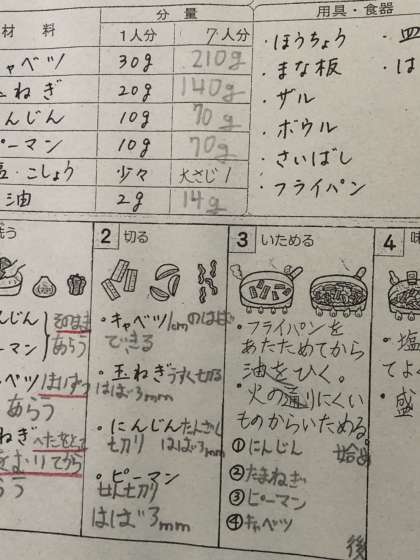 分 量
用具・食器
材 料
1人分
7人分
ャベツ
30g
210g
ねぎ
20g
140g
んじん
10g
70g
ーマン
10g
70g
塩・こしょう
少々
大さじ1
油
2g
14g
・ほうちょう
・皿
・まな板
・は
・ザル
・ボウル
・さいばし
・フライパン
洗う
んじん
そのまま
ーマン
あらう
ベツ
あらう
ねぎ
へたをとって
てから
2 切る
・キャベツ1cmのはば
できる
・玉ねぎうすく切る
はば3mm
・にんじんたんざく
切り はば3mm
・ピーマン
せん切り
はば3mm
3 いためる
・フライパンを
あたためてから
油をひく。
・火の通りにくい
ものからいためる。
①にんじん
始め
②たまねぎ
③ピーマン
④キャベツ
後
4 味
・塩
てよく
・盛